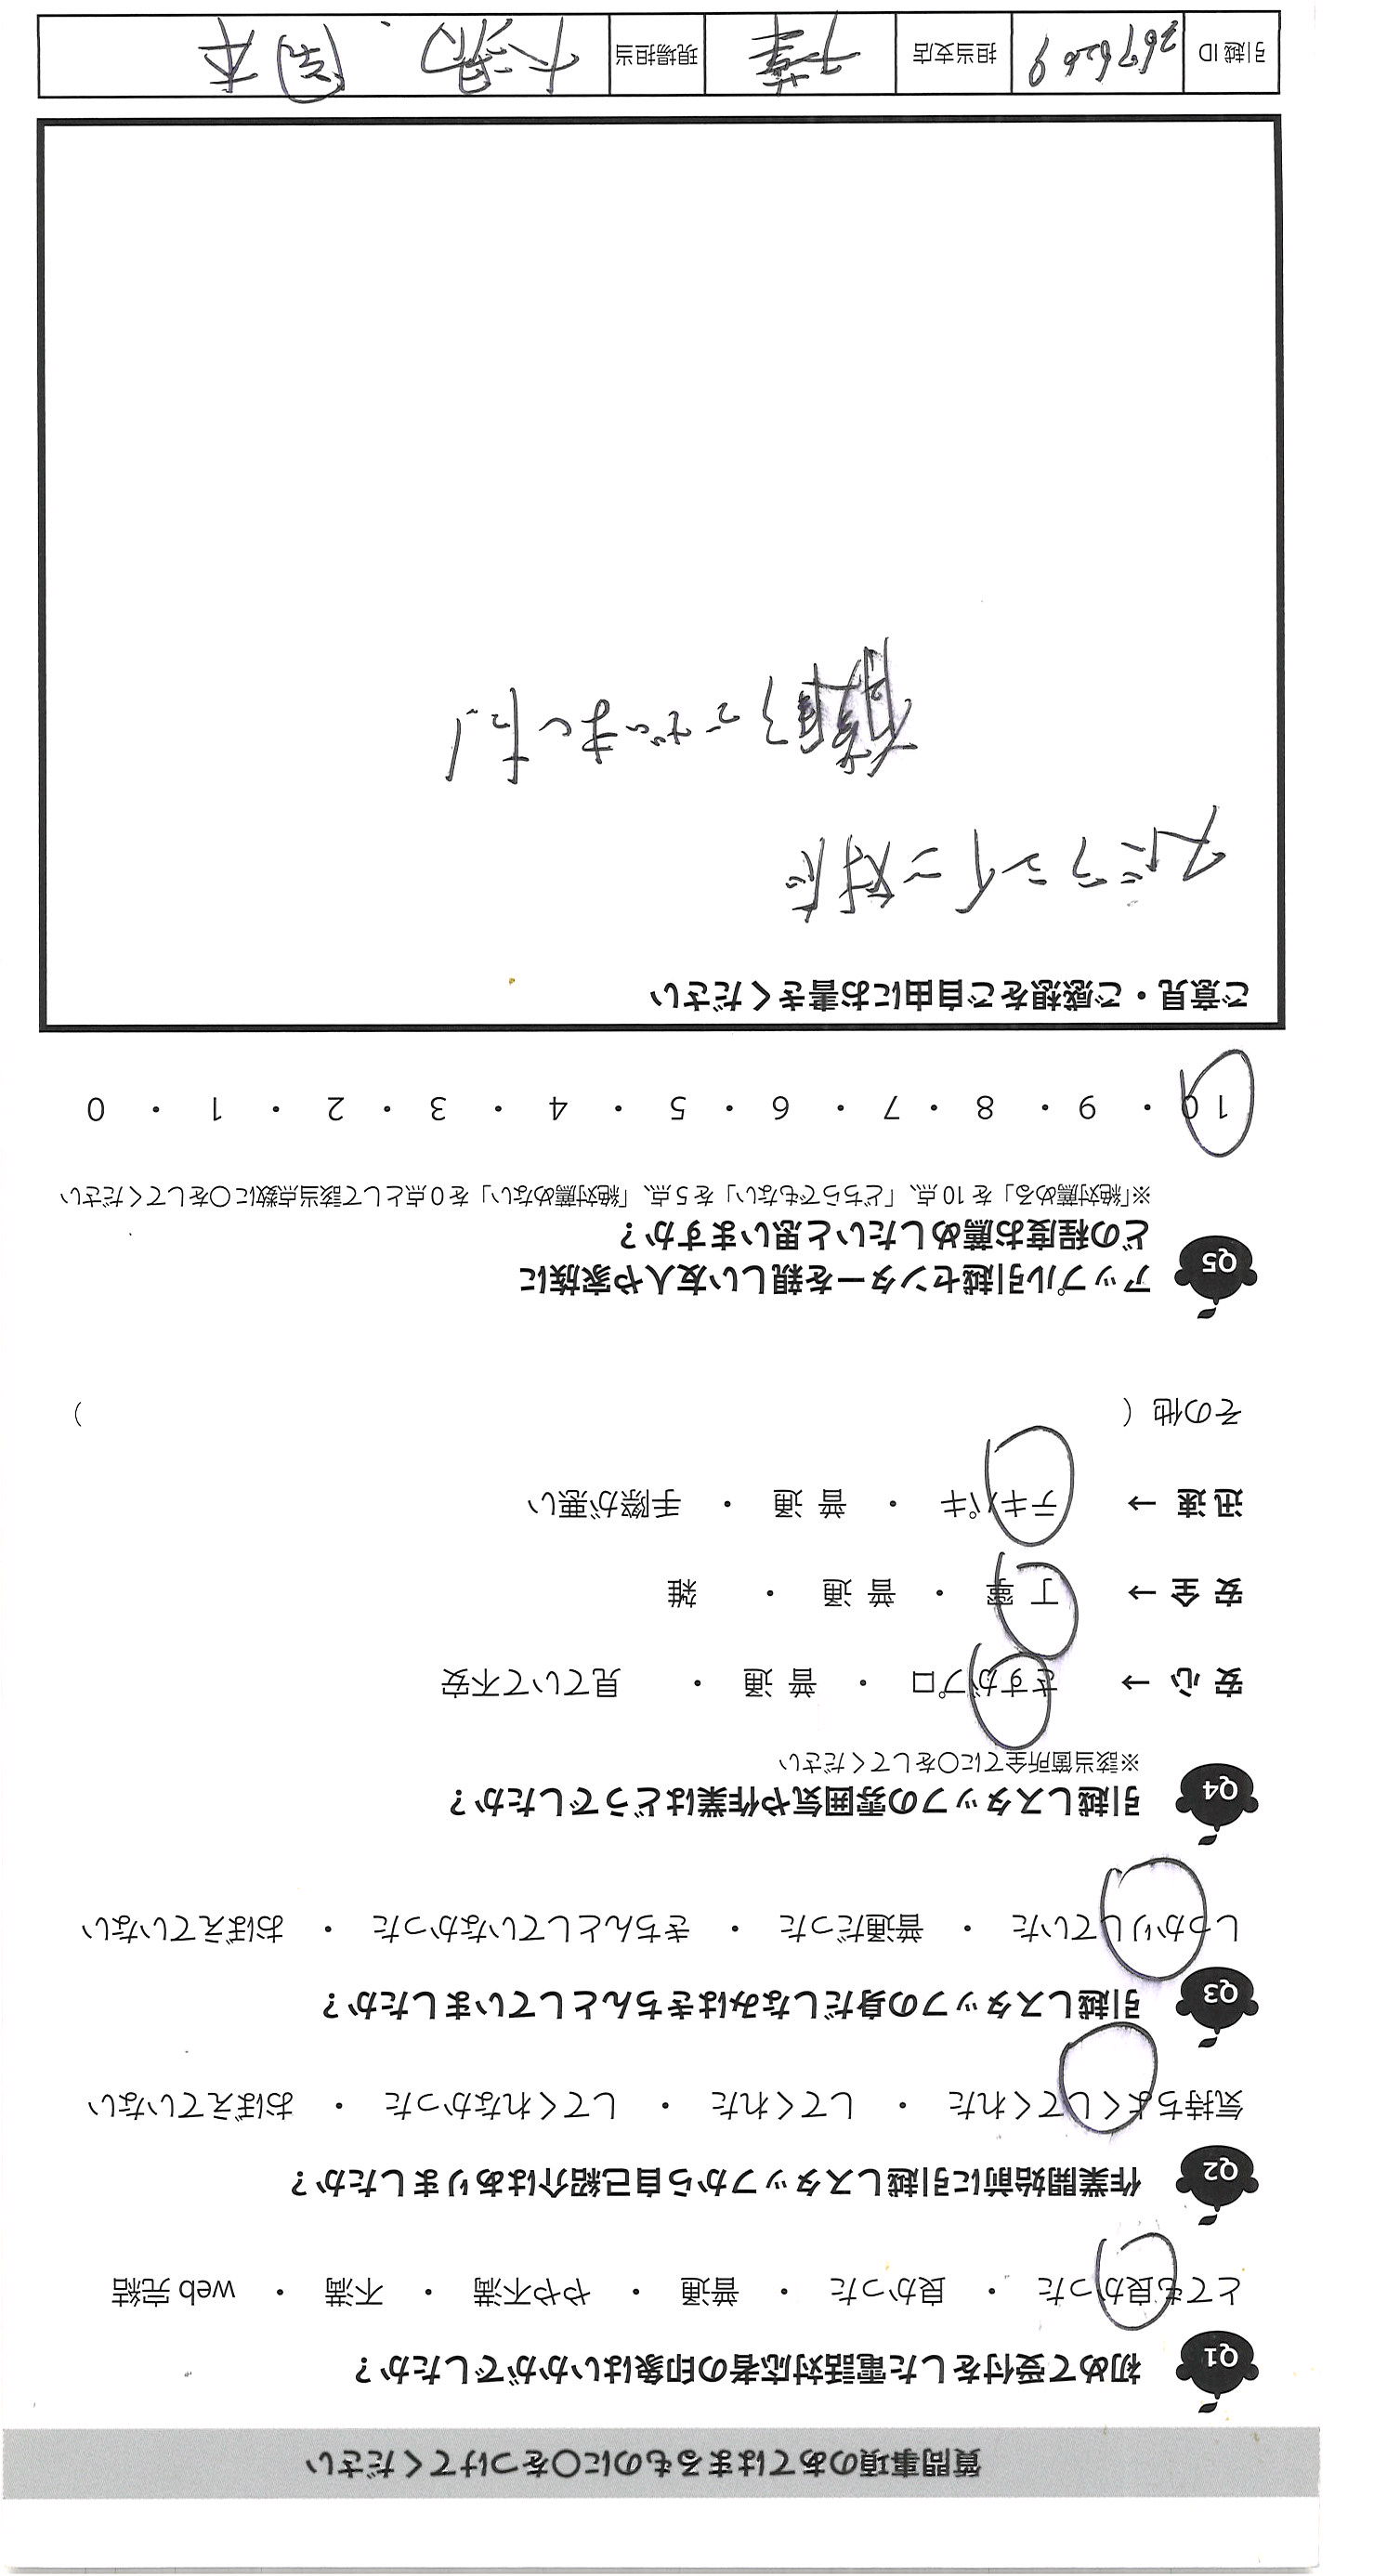 質問事項のあてはまるものに○をつけてください
Q1 初めて受付をした電話対応者の印象はいかがでしたか？
とても良かった ・ 良かった ・ 普通 ・ やや不満 ・ 不満 ・ web完結
Q2 作業開始前に引越しスタッフから自己紹介はありましたか？
気持ちよくしてくれた ・ してくれた ・ してくれなかった ・ おぼえていない
Q3 引越しスタッフの身だしなみはきちんとしていましたか？
しっかりしていた ・ 普通だった ・ きちんとしていなかった ・ おぼえていない
Q4 引越しスタッフの雰囲気や作業はどうでしたか？
※該当箇所全てに○をしてください
安心 → さすがプロ ・ 普通 ・ 見ていて不安
安全 → 丁寧 ・ 普通 ・ 雑
迅速 → テキパキ ・ 普通 ・ 手際が悪い
その他（ ）
Q5 アップル引越センターを親しい友人や家族に
どの程度お薦めしたいと思いますか？
※「絶対薦める」を10点、「どちらでもない」を5点、「絶対薦めない」を0点として該当点数に○をしてください
10 ・ 9 ・ 8 ・ 7 ・ 6 ・ 5 ・ 4 ・ 3 ・ 2 ・ 1 ・ 0
ご意見・ご感想をご自由にお書きください
スピーディーな対応
でした！
引越ID 担当支店 千葉 現場担当 岡本